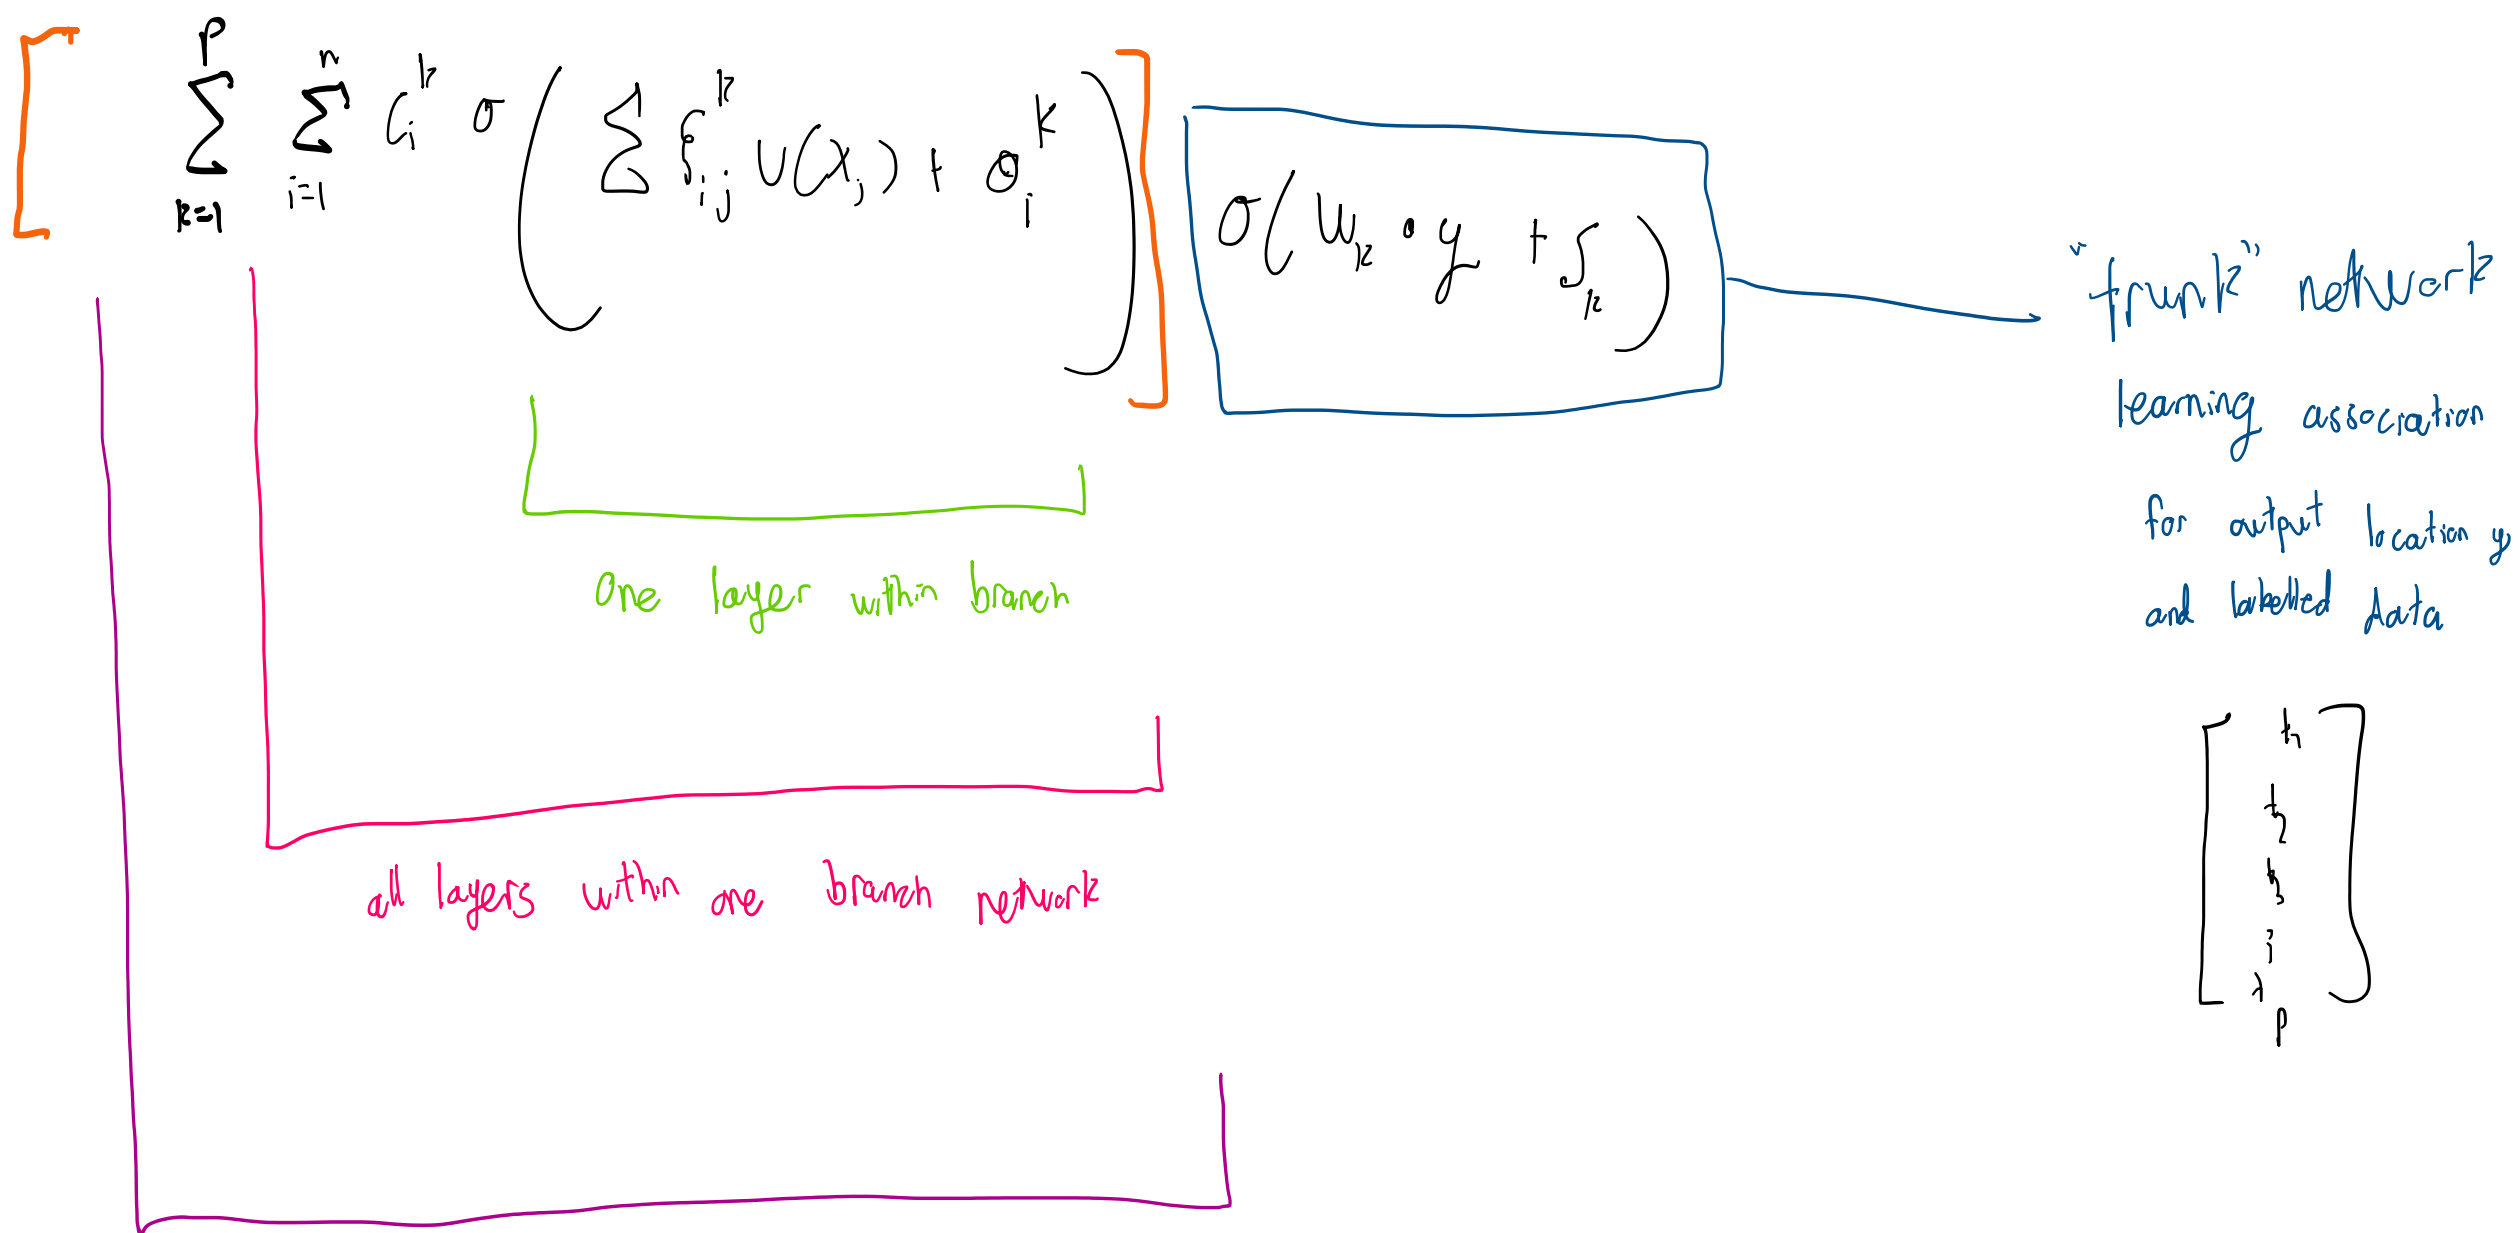 [ Σ_{k=1}^{p} Σ_{i=1}^{n} C_i^k σ ( Σ ξ_{ij}^k u(x_j) + θ_i^k ) ] σ( W_k · y + ζ_k )
"trunk" network
learning association
for output location y
and labelled data
one layer within branch
[ t_1
t_2
t_3
⋮
t_p ]
all layers within one branch network